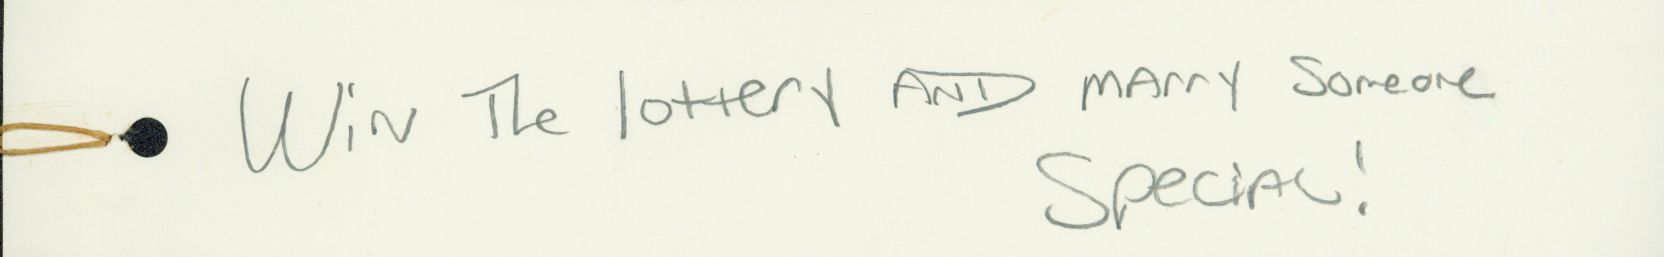 Win The lottery AND MARRY Someone
Special!